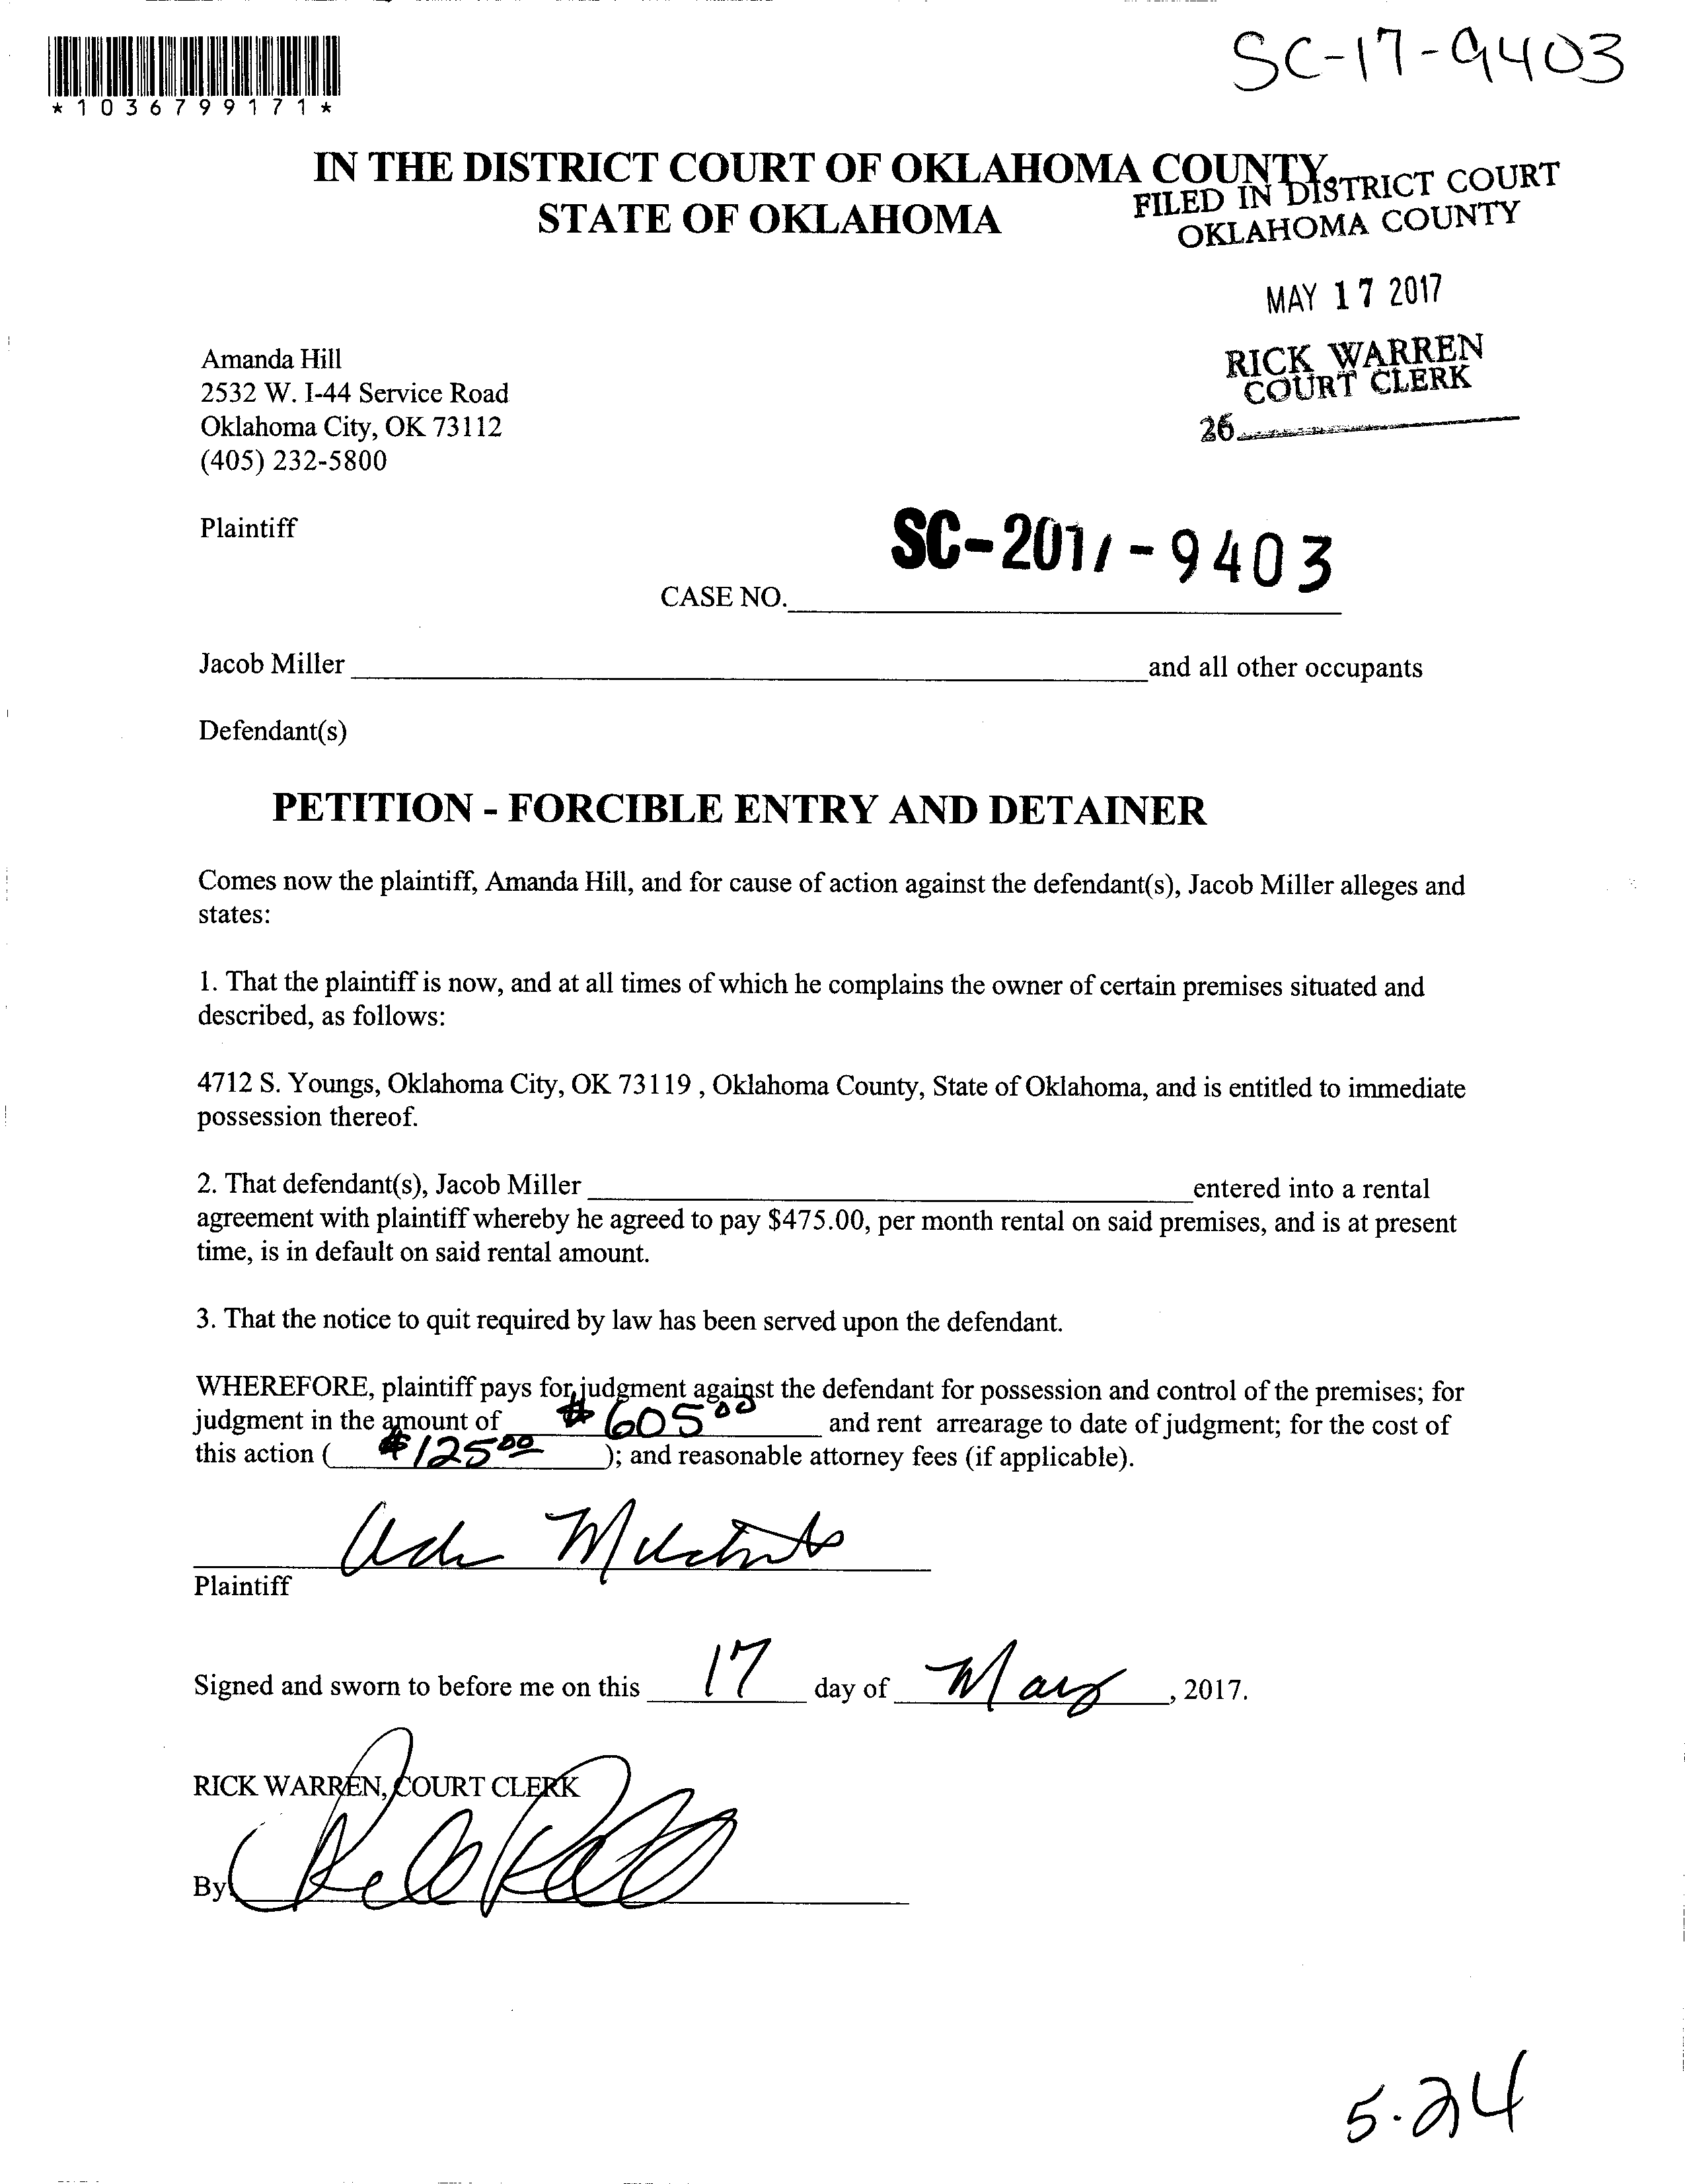 SC-17-9403
*1036799171*
IN THE DISTRICT COURT OF OKLAHOMA COUNTY
STATE OF OKLAHOMA
FILED IN DISTRICT COURT
OKLAHOMA COUNTY
MAY 17 2017
RICK WARREN
COURT CLERK
26
Amanda Hill
2532 W. I-44 Service Road
Oklahoma City, OK 73112
(405) 232-5800
Plaintiff
SC-2017-9403
CASE NO.
Jacob Miller and all other occupants
Defendant(s)
PETITION - FORCIBLE ENTRY AND DETAINER
Comes now the plaintiff, Amanda Hill, and for cause of action against the defendant(s), Jacob Miller alleges and
states:
1. That the plaintiff is now, and at all times of which he complains the owner of certain premises situated and
described, as follows:
4712 S. Youngs, Oklahoma City, OK 73119 , Oklahoma County, State of Oklahoma, and is entitled to immediate
possession thereof.
2. That defendant(s), Jacob Miller entered into a rental
agreement with plaintiff whereby he agreed to pay $475.00, per month rental on said premises, and is at present
time, is in default on said rental amount.
3. That the notice to quit required by law has been served upon the defendant.
WHEREFORE, plaintiff pays for judgment against the defendant for possession and control of the premises; for
judgment in the amount of $605 00 and rent arrearage to date of judgment; for the cost of
this action ( $125 00 ); and reasonable attorney fees (if applicable).
Plaintiff
Signed and sworn to before me on this 17 day of May , 2017.
RICK WARREN, COURT CLERK
By
5.24